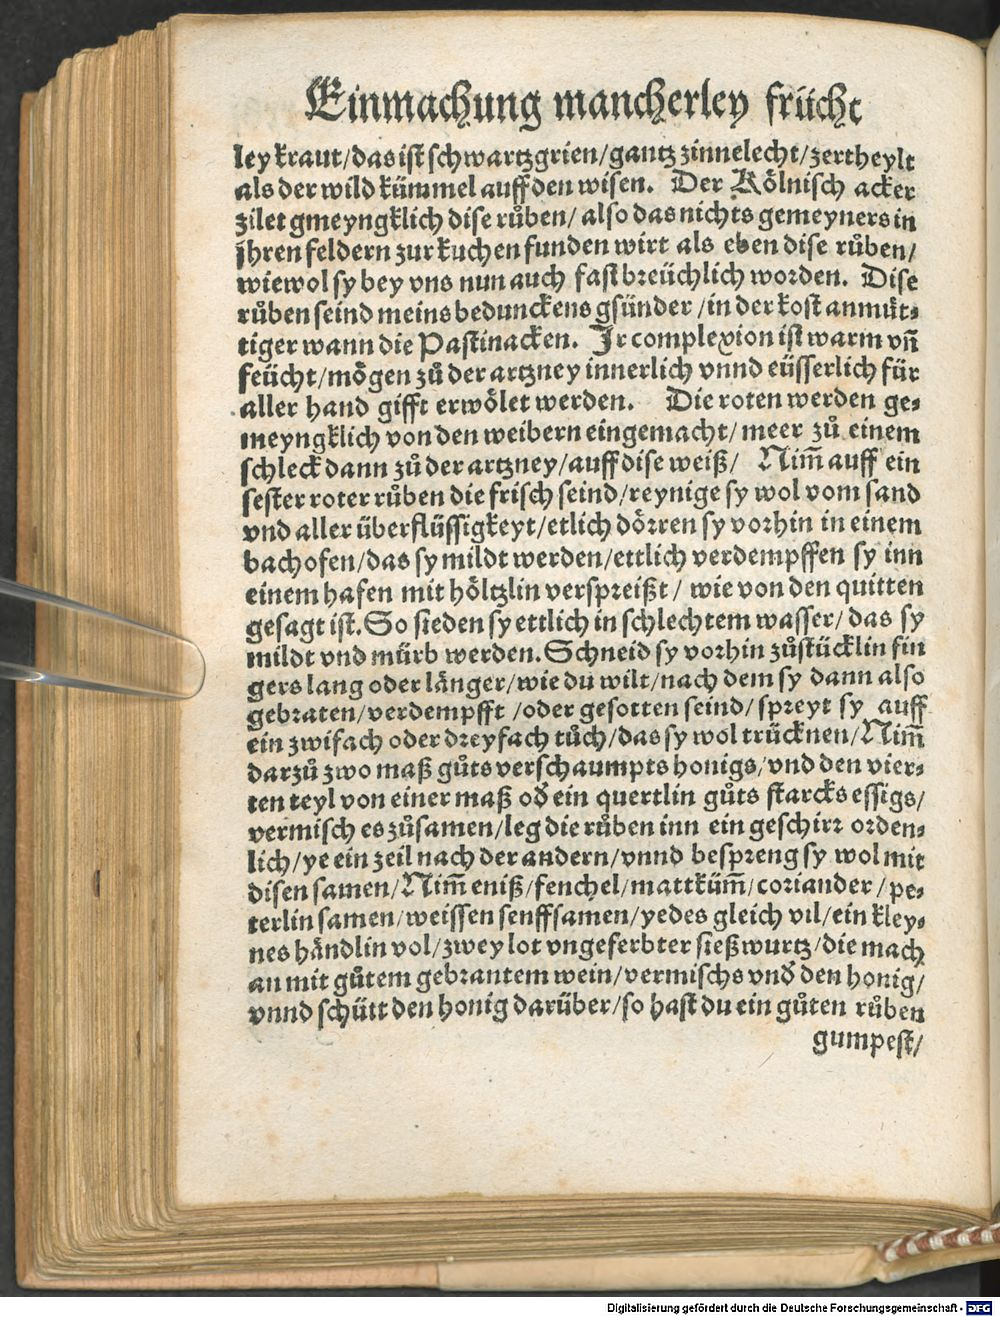 Einmachung mancherley frücht
ley kraut/das ist schwartzgrien/gantz zinnelecht/zertheylt
als der wild kümmel auff den wisen. Der Kölnisch acker
zilet gmeyngklich dise růben/ also das nichts gemeyners in
jhren feldern zur kuchen funden wirt als eben dise růben/
wiewol sy bey vns nun auch fast breüchlich worden. Dise
růben seind meins beduncken̄s gsünder /in der kost anmůt⸗
tiger wann die Pastinacken. Jr complexion ist warm vn̄
feücht/mögen zů der artzney innerlich vnnd eüsserlich für
aller hand gifft erwölet werden. Die roten werden ge⸗
meyngklich von den weibern eingemacht/ meer zů einem
schleck dann zů der artzney/auff dise weiß/ Nim̄ auff ein
sester roter růben die frisch seind/reynige sy wol vom sand
vnd aller überflüssigkeyt/etlich dörren sy vorhin in einem
bachofen/das sy mildt werden/ettlich verdempffen sy inn
einem hafen mit höltzlin verspreißt/ wie von den quitten
gesagt ist. So sieden sy ettlich in schlechtem wasser/ das sy
mildt vnd mürb werden. Schneid sy vorhin zůstücklin fin
gers lang oder länger/wie du wilt/nach dem sy dann also
gebraten/verdempfft /oder gesotten seind/ spreyt sy auff
ein zwifach oder dreyfach tůch/das sy wol trücknen/Nim̄
darzů zwo maß gůts verschaumpts honigs/vnd den vier⸗
ten teyl von einer maß od̕ ein quertlin gůts starcks essigs/
vermisch es zůsamen/leg die růben inn ein geschirr orden⸗
lich/ye ein zeil nach der andern/vnnd bespreng sy wol mit
disen samen/Nim̄ eniß/fenchel/mattküm̄/coriander/pe⸗
terlin samen/weissen senffsamen/yedes gleich vil/ein kley⸗
nes händlin vol/zwey lot vngeferbter sießwurtz/die mach
an mit gůtem gebrantem wein/vermischs vnd̕ den honig/
vnnd schütt den honig darüber/so hast du ein gůten růben
gumpest/
Digitalisierung gefördert durch die Deutsche Forschungsgemeinschaft - DFG